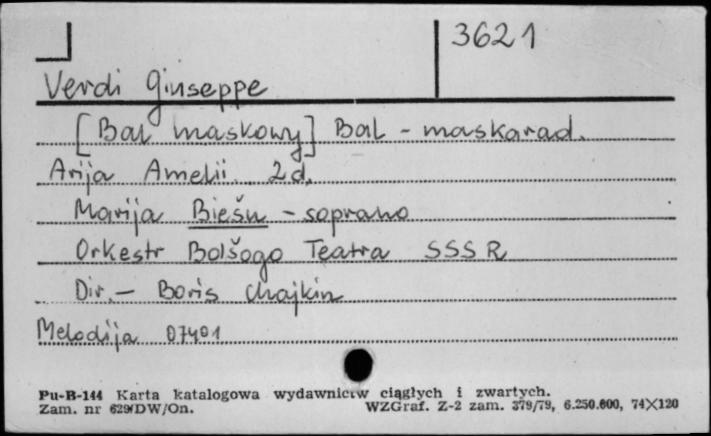 3621
Verdi Giuseppe
[Bal maskowy] Bal - maskarad.
Arija Amelii. 2d.
Marija Biešu - soprano
Orkestr Bolšogo Teatra SSSR
Dir. - Boris Chajkin
Melodija 07401
Pu-B-144 Karta katalogowa wydawnictw ciągłych i zwartych.
Zam. nr 629/DW/On. WZGraf. Z-2 zam. 379/79, 6.250.600, 74X120